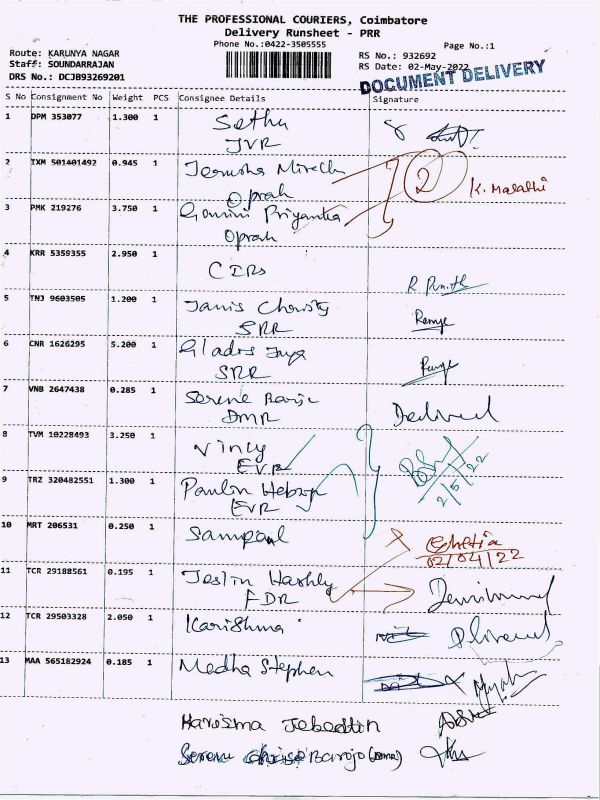 THE PROFESSIONAL COURIERS, Coimbatore
Delivery Runsheet - PRR
Phone No.:0422-3505555
Page No.:1
Route: KARUNYA NAGAR
RS No.: 932692
Staff: SOUNDARRAJAN
RS Date: 02-May-2022
DRS No.: DCJB93269201
DOCUMENT DELIVERY
S No Consignment No Weight PCS Consignee Details Signature
1 DPM 353077 1.300 1 Sethu
JVR
2 IXM 501401492 0.945 1
Oprah
2
K. Malathi
3 PMK 219276 3.750 1 Gowini Priyanka
Oprah
4 KRR 5359355 2.950 1 CIRs
5 TNJ 9603505 1.200 1 Janis Christy
SRR
Ramya
6 CNR 1626295 5.200 1 Gladis Jaya
SRR
7 VNB 2647438 0.285 1 Serene Baris
DMR
Delivered
8 TVM 10228493 3.250 1 Vincy
EVR
2/5/22
9 TRZ 320482551 1.300 1 Paulin
EVR
10 MRT 206531 0.250 1 Sampaul
02/04/22
11 TCR 29188561 0.195 1 Jeslin Hashly
FDR
12 TCR 29503328 2.050 1 Karishma
13 MAA 565182924 0.185 1 Medha Stephen
Harisma
Barojo